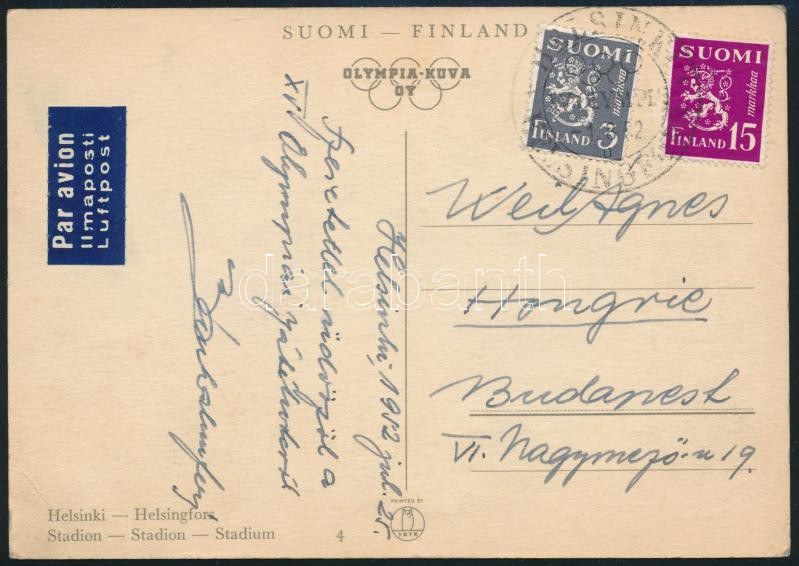 SUOMI — FINLAND
OLYMPIA-KUVA
OY
SUOMI
markkaa
FINLAND 3
SUOMI
markkaa
FINLAND 15
Par avion
Ilmaposti
Luftpost
Helsinki, 1952 jul. 25.
Szeretettel üdvözöl a
XV. Olympiai játékokról
Weil Agnes
Hongrie
Budapest
VI. Nagymező-u 19.
darabanth
Helsinki — Helsingfors
Stadion — Stadion — Stadium 4
PRINTED BY